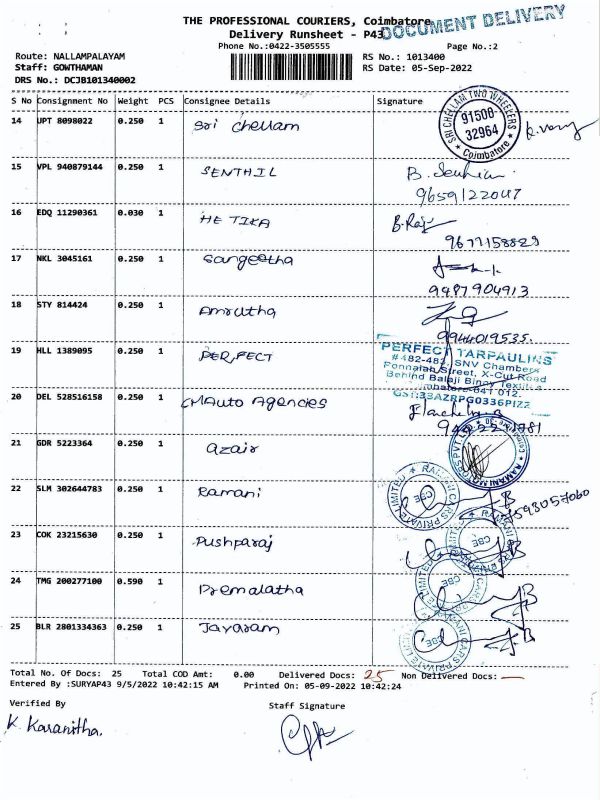 THE PROFESSIONAL COURIERS, Coimbatore
DOCUMENT DELIVERY
Delivery Runsheet - P43
Phone No.:0422-3505555 Page No.:2
Route: NALLAMPALAYAM RS No.: 1013400
Staff: GOWTHAMAN RS Date: 05-Sep-2022
DRS No.: DCJB101340002
S No Consignment No Weight PCS Consignee Details Signature
14 UPT 8098022 0.250 1 Sri Chellam
SRI CHELLAM TWO WHEELERS
91500-
32964
Coimbatore
15 VPL 940879144 0.250 1 SENTHIL
9659122047
16 EDQ 11290361 0.030 1 HETIKA B.Raj
9677158829
17 NKL 3045161 0.250 1 Sangeetha
9487904913
18 STY 814424 0.250 1 Amrutha
9944019535.
19 HLL 1389095 0.250 1 PERFECT
PERFECT TARPAULINS
#482-483, SNV Chambers
Ponnaiah Street, X-Cut Road
Behind Balaji Binny Textile
Coimbatore-641 012.
GST:33AZRPG0336P1ZZ
20 DEL 528516158 0.250 1 CM Auto Agencies
21 GDR 5223364 0.250 1 Azair
22 SLM 302644783 0.250 1 Ramani
RAMANI CARS PRIVATE LIMITED
CBE
23 COK 23215630 0.250 1 Pushparaj
CBE
24 TMG 200277100 0.590 1 Premalatha
CBE
25 BLR 2801334363 0.250 1 Jayaram
RAMANI CARS PRIVATE LIMITED
Total No. Of Docs: 25 Total COD Amt: 0.00 Delivered Docs: 25 Non Delivered Docs: —
Entered By :SURYAP43 9/5/2022 10:42:15 AM Printed On: 05-09-2022 10:42:24
Verified By Staff Signature
K. Karanitha.